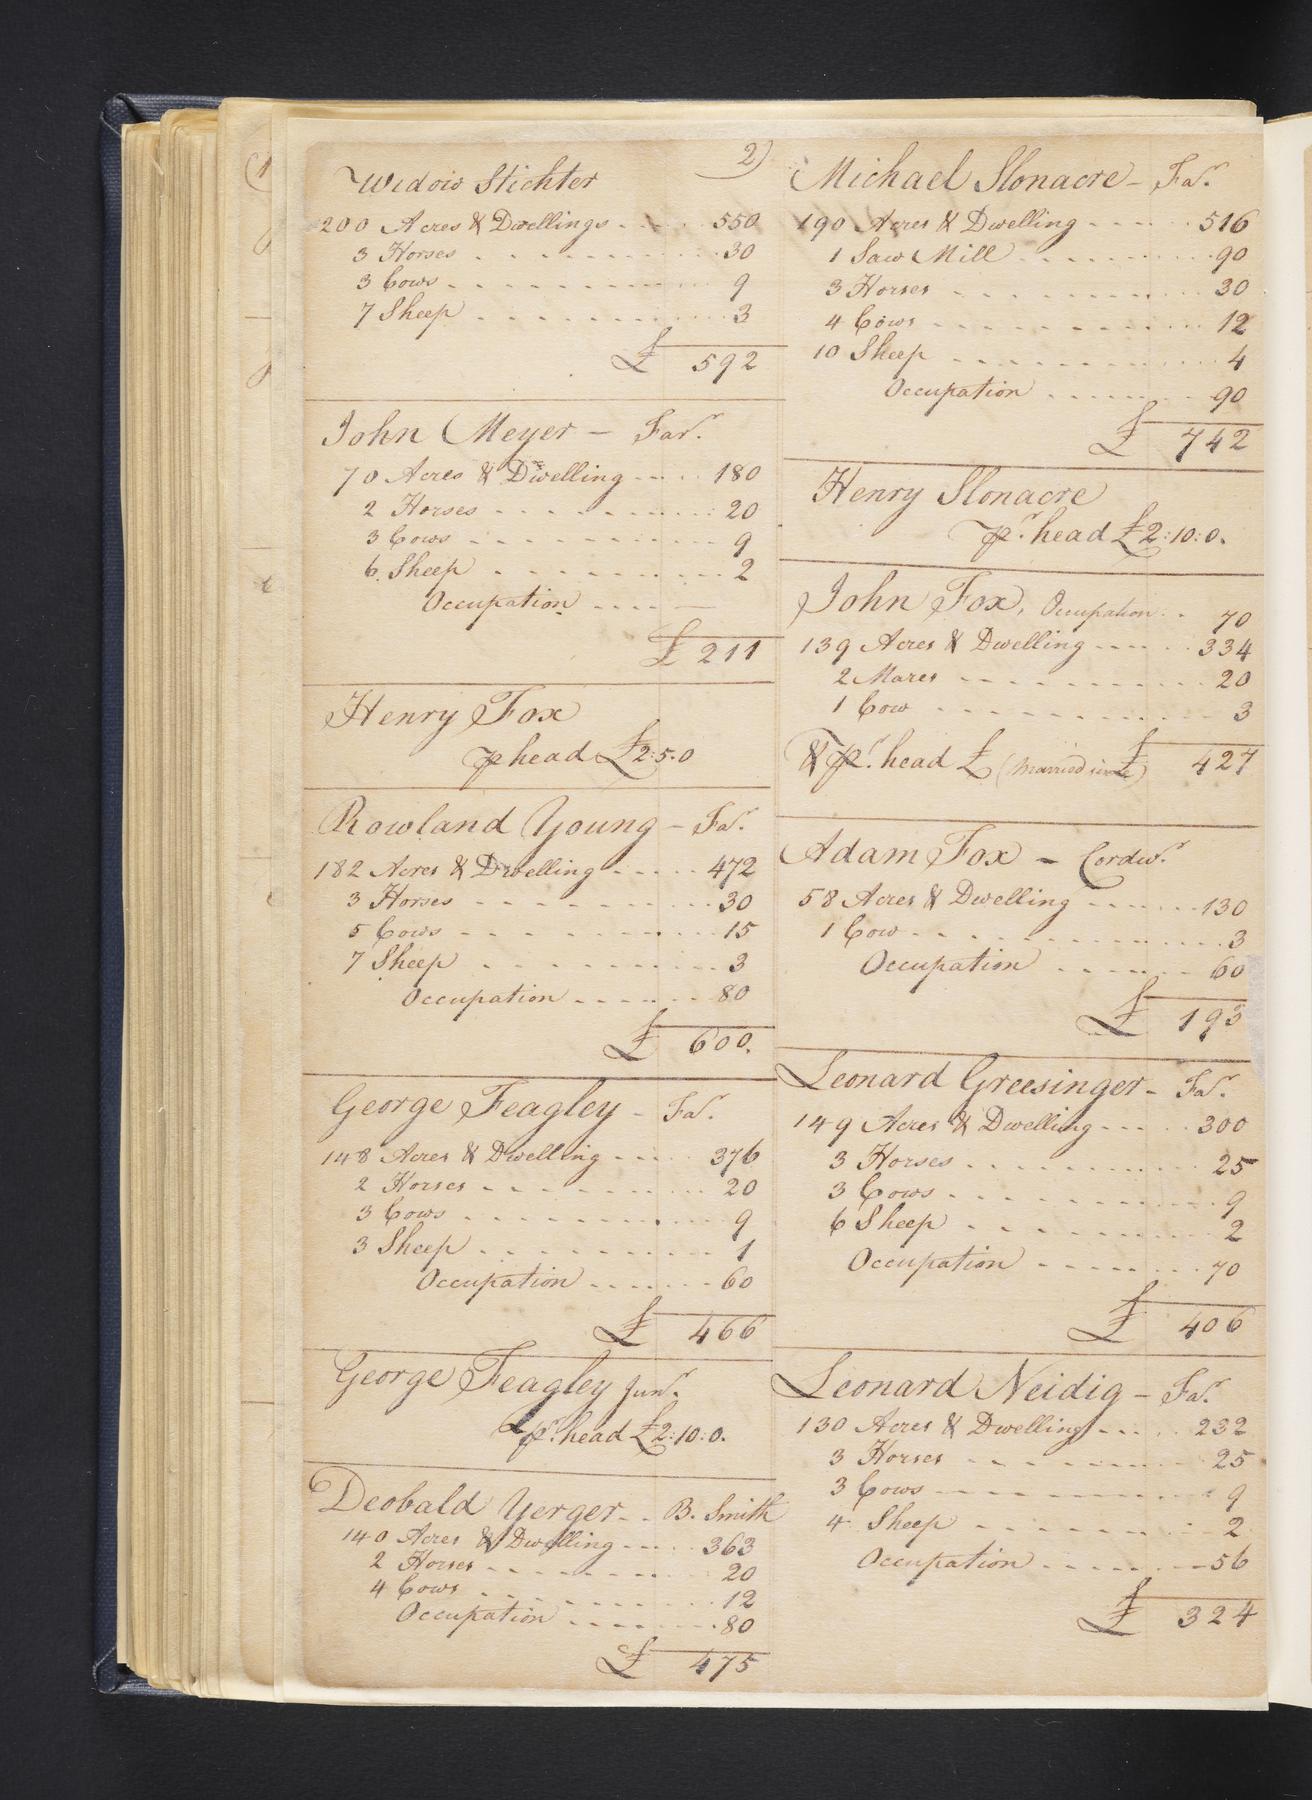 2)
Widow Stichter
200 Acres & Dwellings 550
3 Horses 30
3 Cows 9
7 Sheep 3
£ 592
John Meyer – Far.
70 Acres & Dwelling 180
2 Horses 20
3 Cows 9
6 Sheep 2
Occupation —
£ 211
Henry Fox
p head £2:5.0
Rowland Young – Far.
182 Acres & Dwelling 472
3 Horses 30
5 Cows 15
7 Sheep 3
Occupation 80
£ 600.
George Feagley – Far.
148 Acres & Dwelling 376
2 Horses 20
3 Cows 9
3 Sheep 1
Occupation 60
£ 466
George Feagley Junr.
pr. head £2:10:0.
Deobald Yerger -- B. Smith
140 Acres & Dwelling 363
2 Horses 20
4 Cows 12
Occupation 80
£ 475
Michael Slonacre – Far.
190 Acres & Dwelling 516
1 Saw Mill 90
3 Horses 30
4 Cows 12
10 Sheep 4
Occupation 90
£ 742
Henry Slonacre
pr. head £2:10:0.
John Fox, Occupation 70
139 Acres & Dwelling 334
2 Mares 20
1 Cow 3
£ 427
& pr. head £ (Married since)
Adam Fox – Cordwr.
58 Acres & Dwelling 130
1 Cow 3
Occupation 60
£ 193
Leonard Greesinger – Far.
149 Acres & Dwelling 300
3 Horses 25
3 Cows 9
6 Sheep 2
Occupation 70
£ 406
Leonard Neidig – Far.
130 Acres & Dwelling 232
3 Horses 25
3 Cows 9
4 Sheep 2
Occupation 56
£ 324